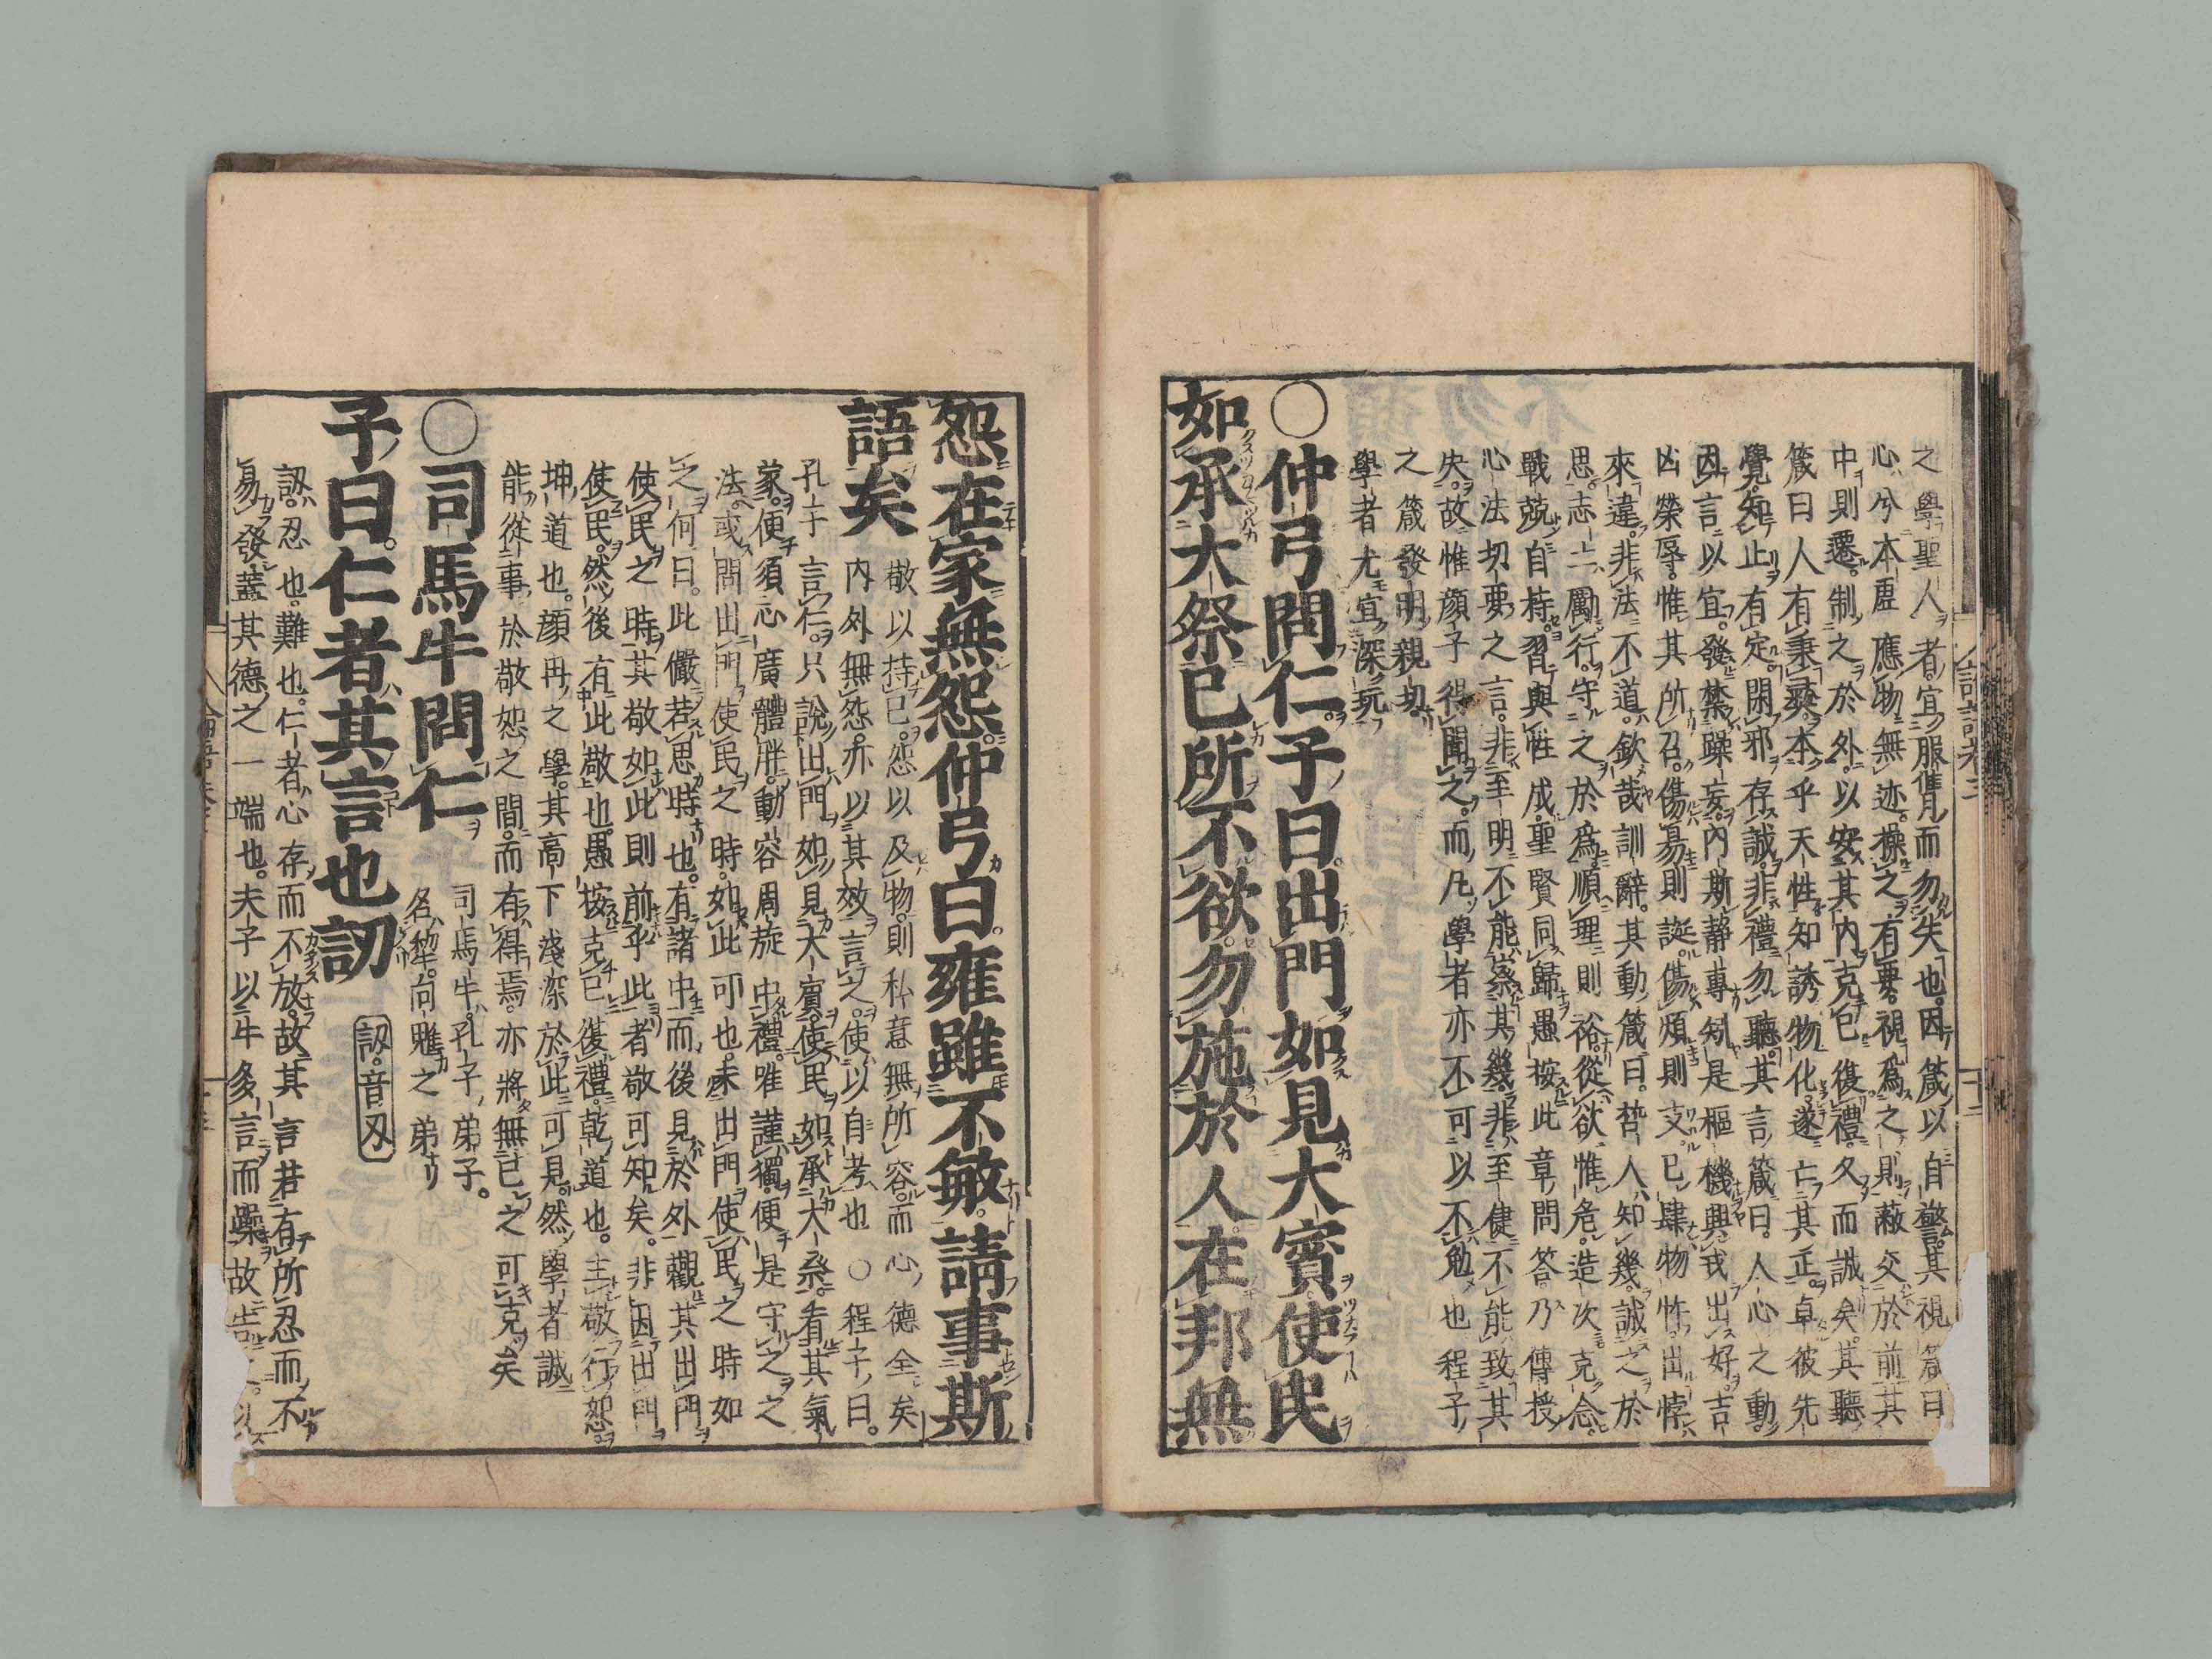 之學聖人者宜服膺而勿失也因箴以自警其視箴曰
心兮本虛應物無迹操之有要視爲之則蔽交於前其
中則遷制之於外以安其内克己復禮久而誠矣其聽
箴曰人有秉彝本乎天性知誘物化遂亡其正卓彼先
覺知止有定閑邪存誠非禮勿聽其言箴曰人心之動
因言以宣發禁躁妄内斯靜專矧是樞機興戎出好吉
凶榮辱惟其所召傷易則誕傷煩則支已肆物忤出悖
來違非法不道欽哉訓辭其動箴曰哲人知幾誠之於
思志士勵行守之於爲順理則裕從欲惟危造次克念
戰兢自持習與性成聖賢同歸愚按此章問答乃傳授
心法切要之言非至明不能察其幾非至健不能致其
失故惟顔子得聞之而凡學者亦不可以不勉也程子
之箴發明親切
學者尤宜深玩
○仲弓問仁子曰出門如見大賓使民
如承大祭已所不欲勿施於人在邦無
怨在家無怨仲弓曰雍雖不敏請事斯
語矣
敬以持已恕以及物則私意無所容而心德全矣
内外無怨亦以其效言之使以自考也○程子曰
孔子言仁只說出門如見大賓使民如承大祭看其氣
象便須心廣體胖動容周旋中禮唯謹獨便是守之之
法或問出門使民之時如此可也未出門使民之時如
之何曰此儼若思時也有諸中而後見於外觀其出門
使民之時其敬如此則前乎此者敬可知矣非因出門
使民然後有此敬也愚按克已復禮乾道也主敬行恕
坤道也顔冉之學其高下淺深於此可見然學者誠
能從事於敬恕之間而有得焉亦將無已之可克矣
○司馬牛問仁
司馬牛孔子弟子
名犂向魋之弟
子曰仁者其言也訒
訒音刃
訒忍也難也仁者心存而不放故其言若有所忍而不
易發蓋其德之一端也夫子以牛多言而躁故告